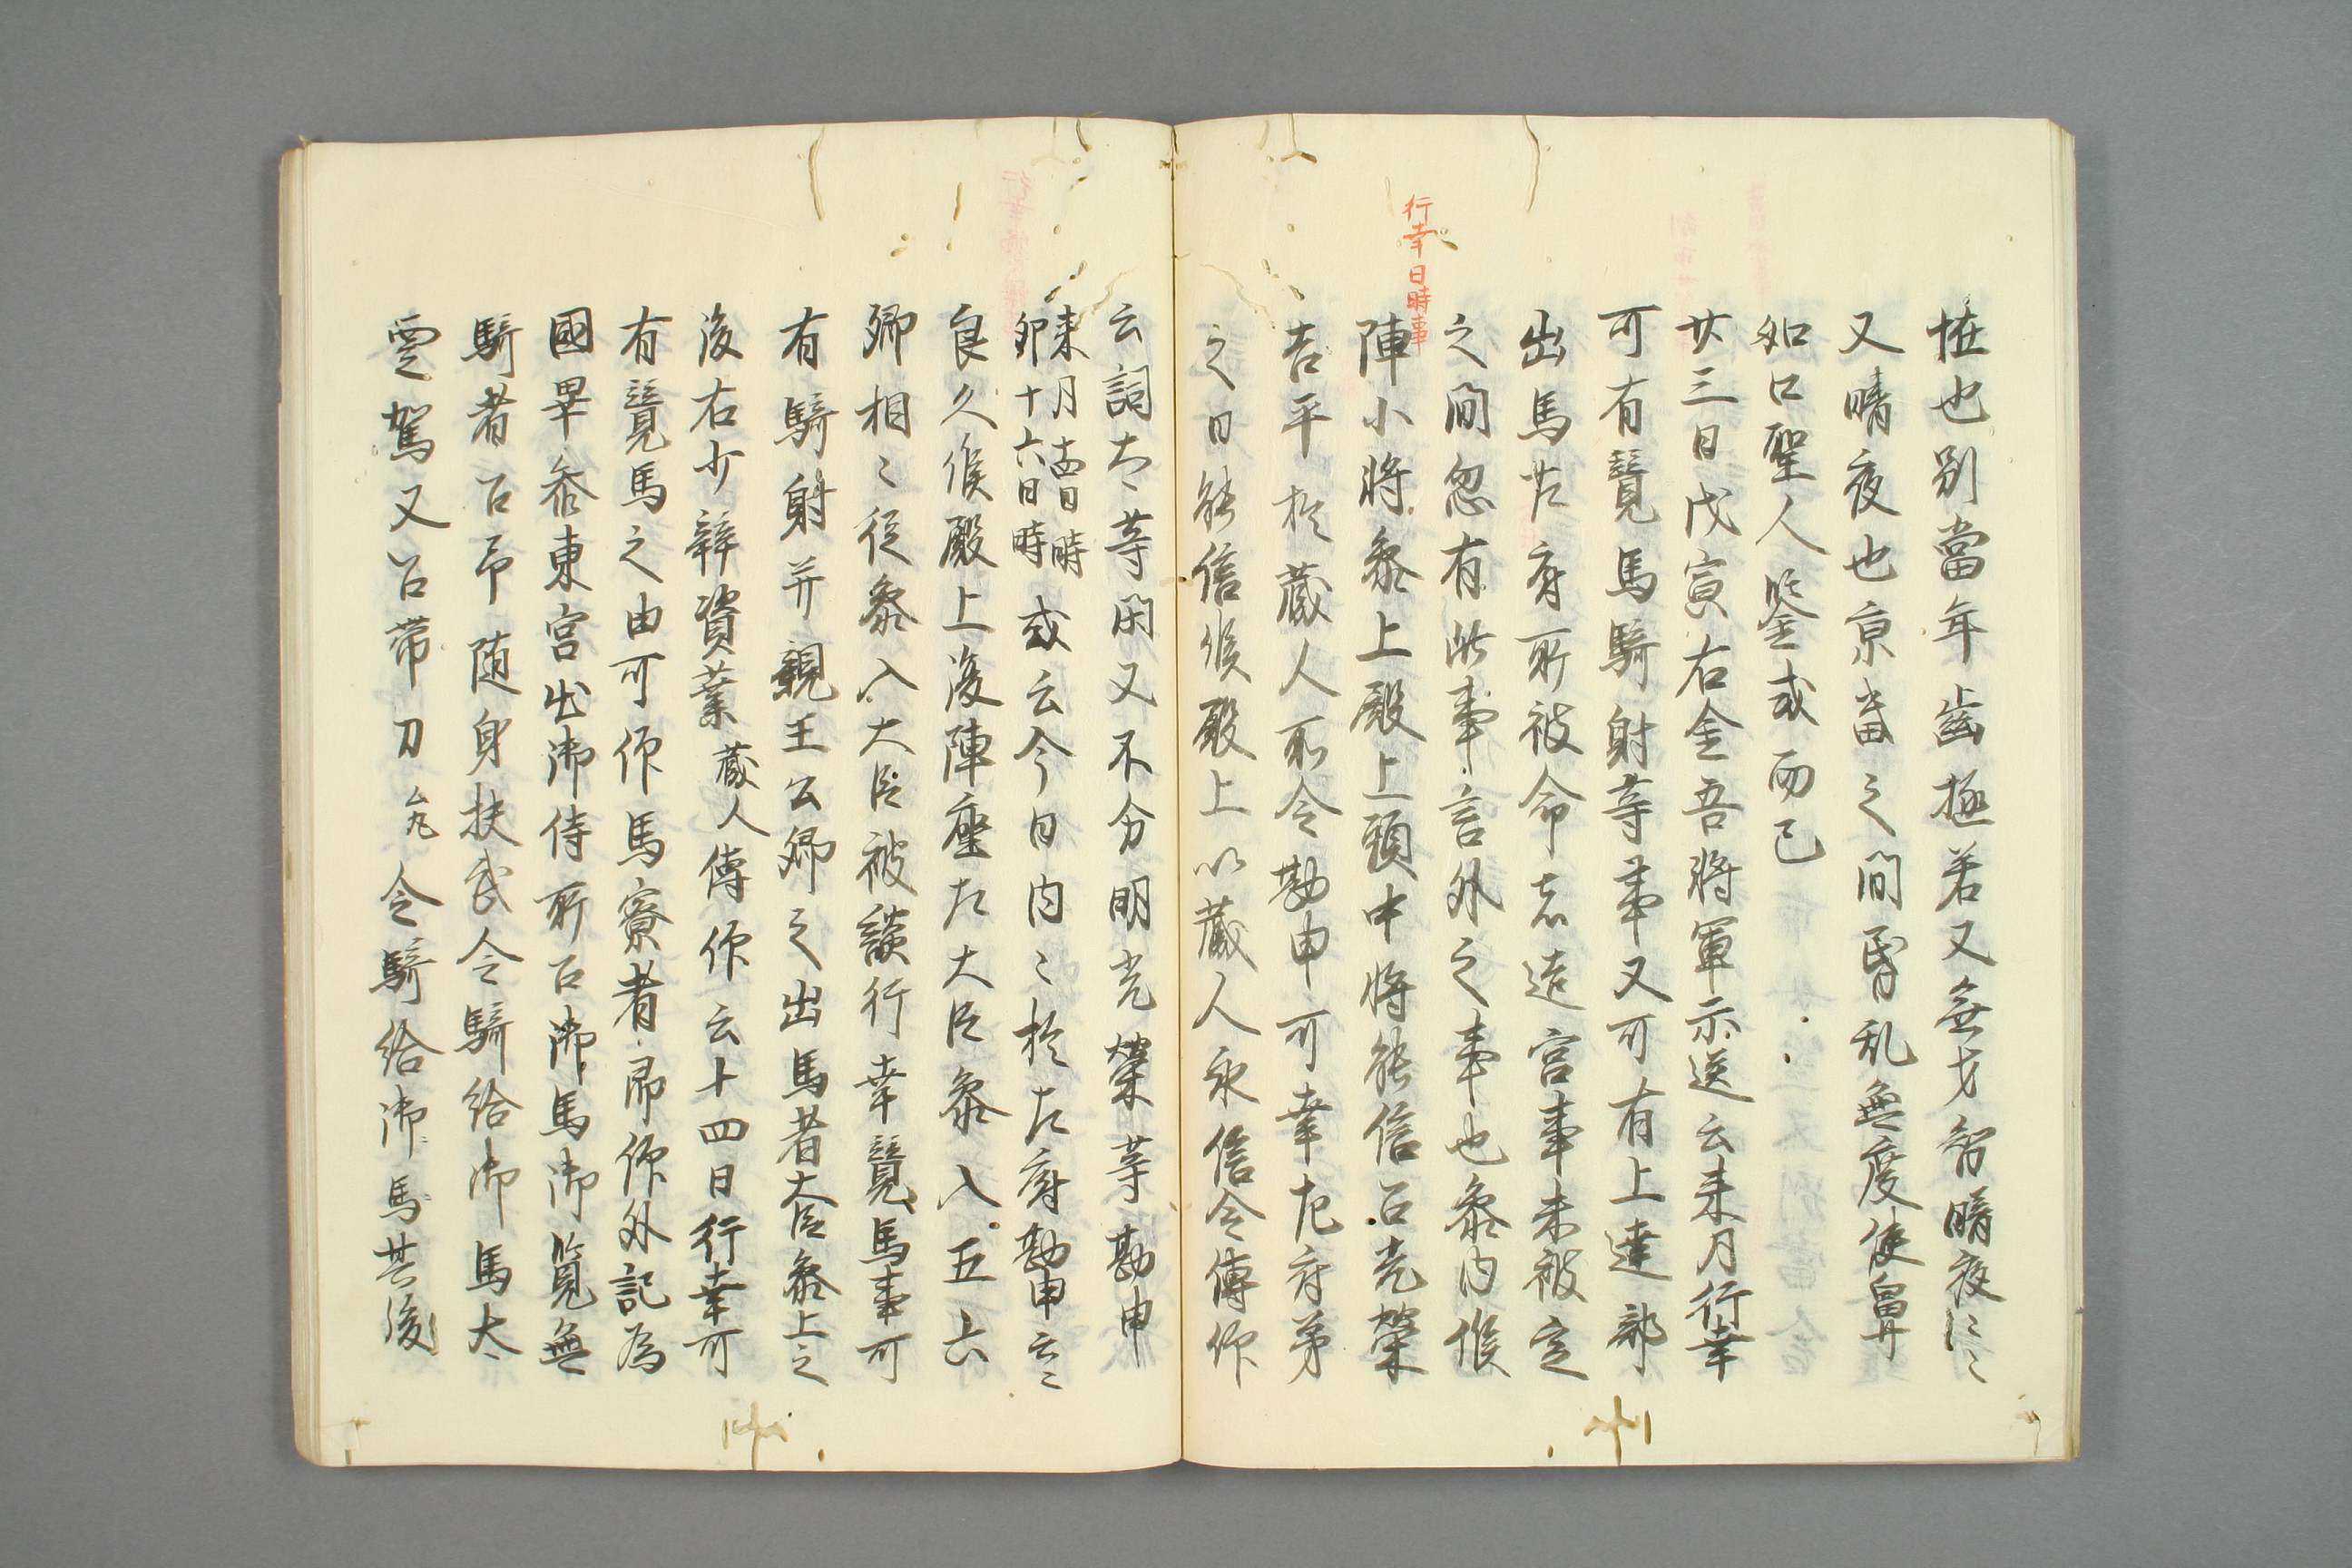 恠也別當年齒極若又無才智暗夜〻〻
又晴夜也京畜之間昏乱無度使鼻
如口聖人鑒或而已
廿三日戊寅右金吾将軍示送云来月行幸
可有覽馬騎射等事又可有上達部
出馬左府所被命者造宮事未被定
之間忽有此事言外之事也参内候
陣小将参上殿上頭中将能信召光榮
行幸日時事
吉平於蔵人所令勘申可幸左府第
之日能信候殿上以蔵人永信令傳仰
云詞太等閑又不分明光榮等勘申
来月十四日時
卯十六日時
或云今日内〻於左府勘申云〻
良久候殿上後陣座左大臣参入五六
卿相〻従参入大臣被談行幸覽馬事可
有騎射并親王公卿之出馬者大臣参上之
後右少辨資業蔵人傳仰云十四日行幸可
有覽馬之由可仰馬寮者即仰外記為
國畢参東宮出御侍所召御馬御覧無
騎者召予随身扶武令騎給御馬太
霊駕又召帯刀
令騎給御馬其後